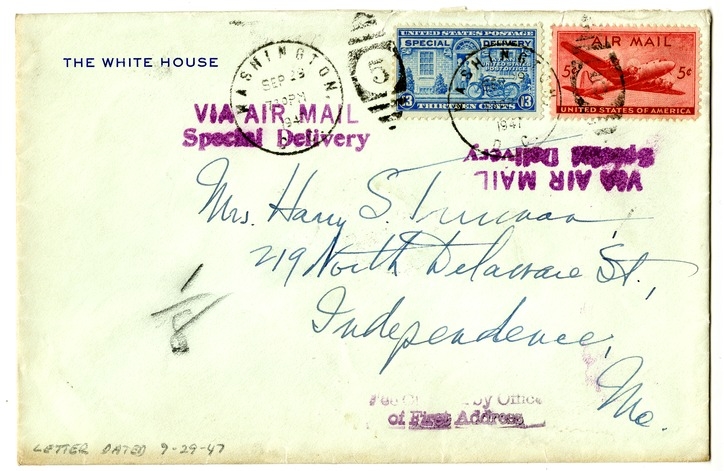 THE WHITE HOUSE
WASHINGTON,
SEP 29
1947
D. C.
5
UNITED STATES POSTAGE
SPECIAL DELIVERY
13 THIRTEEN CENTS 13
WASHINGTON,
1947
D. C.
AIR MAIL
5¢ 5¢
UNITED STATES OF AMERICA
VIA AIR MAIL
Special Delivery
VIA AIR MAIL
Special Delivery
Mrs. Harry S. Truman,
219 North Delaware St.,
Independence,
Mo.
1/8
by Office
of First Address
LETTER DATED 9-29-47